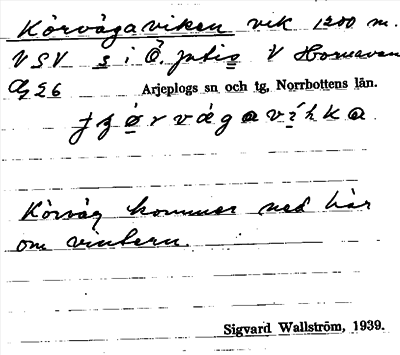 Körvägaviken vik 1200 m.
VSV s i Ö. Jutis V Hornavan
Arjeplogs sn och tg, Norrbottens län.
Körväg kommer ned här
om vintern.
Sigvard Wallström, 1939.